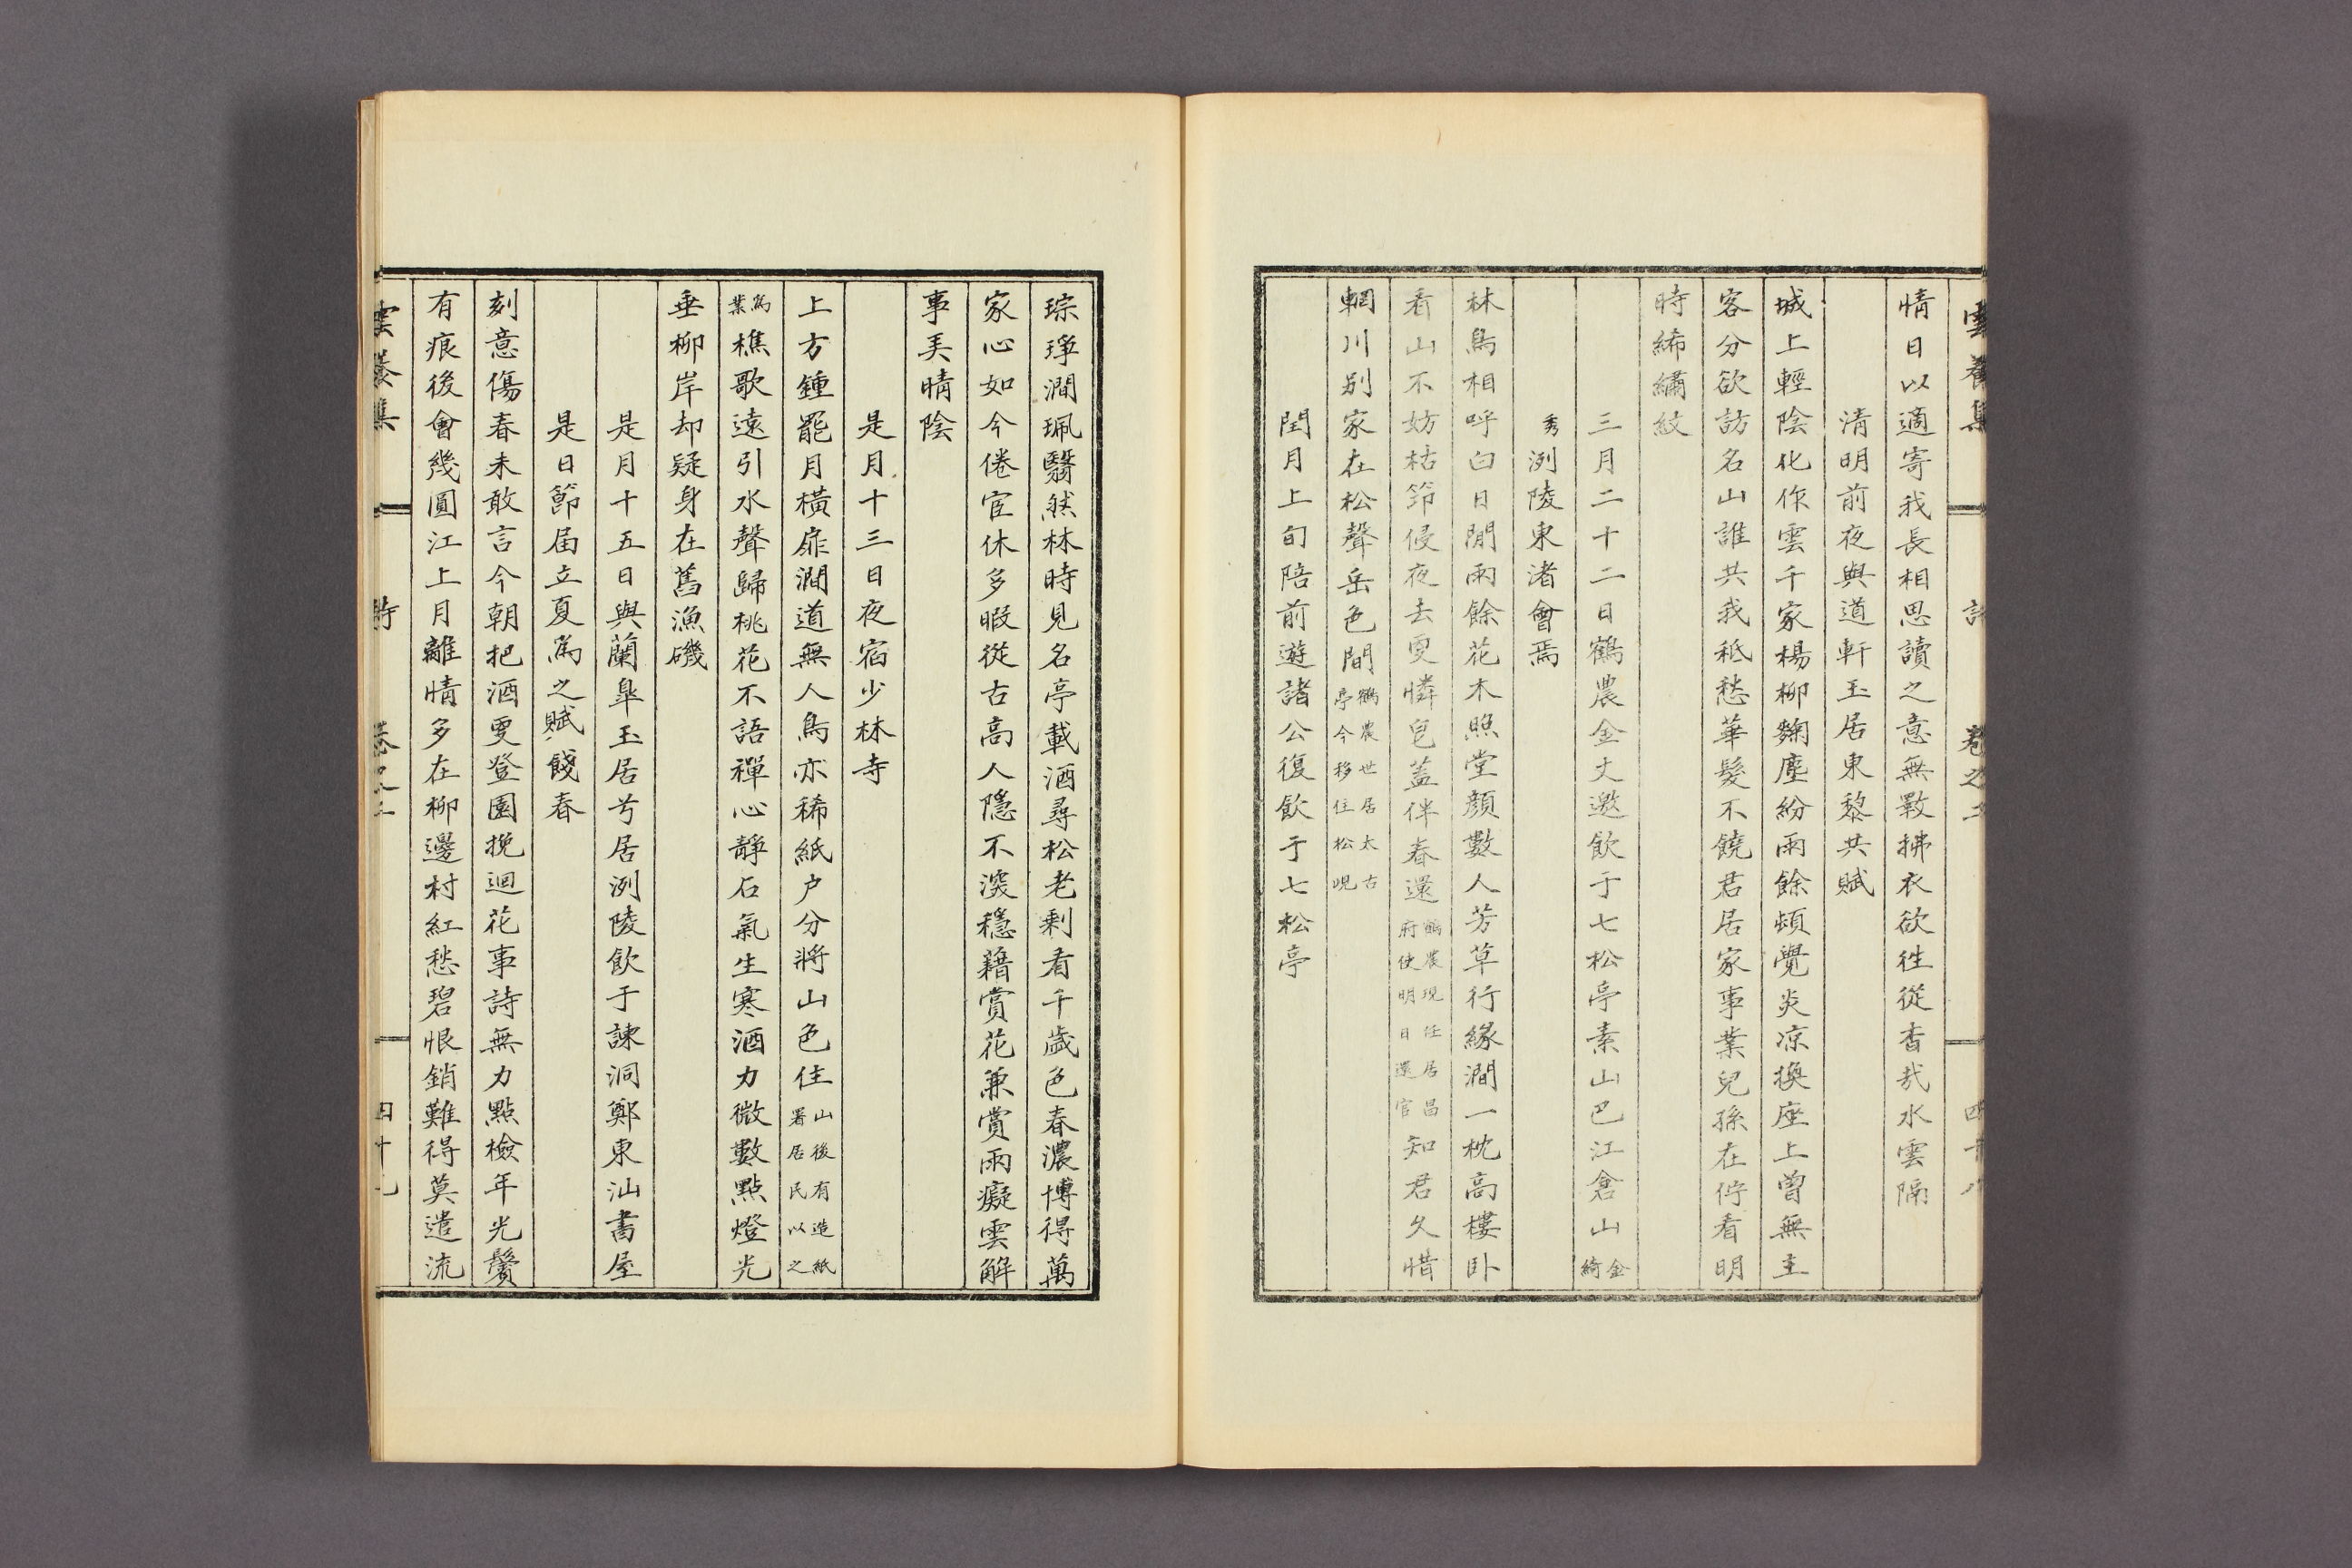 雲養集 詩 卷之二 四十八
情日以適寄我長相思讀之意無斁拂衣欲徃從杳哉水雲隔
清明前夜與道軒玉居東黎共賦
城上輕陰化作雲千家楊柳麴塵紛雨餘頓覺炎凉換座上曾無主
客分欲訪名山誰共我秪愁華髮不饒君居家事業兒孫在佇看明
時絺繡紋
三月二十二日鶴農金丈邀飮于七松亭素山巴江倉山金綺
秀洌陵東渚會焉
林鳥相呼白日閒雨餘花木照堂顔數人芳草行緣澗一枕高樓臥
看山不妨枯筇侵夜去更憐皂蓋伴春還鶴農現任居昌府使明日還官知君久惜
輞川別家在松聲岳色間鶴農世居太古亭今移住松峴
閏月上旬陪前遊諸公復飮于七松亭
琮琤澗珮翳然林時見名亭載酒尋松老剩看千歲色春濃博得萬
家心如今倦宦休多暇從古高人隱不深穩藉賞花兼賞雨癡雲解
事美晴陰
是月十三日夜宿少林寺
上方鍾罷月橫扉澗道無人鳥亦稀紙户分將山色住山後有造紙署居民以之
爲業樵歌遠引水聲歸桃花不語禪心靜石氣生寒酒力微數點燈光
垂柳岸却疑身在舊漁磯
是月十五日與蘭皐玉居芍居洌陵飮于諫洞鄭東汕書屋
是日節届立夏爲之賦餞春
刻意傷春未敢言今朝把酒更登園挽迴花事詩無力點檢年光鬢
有痕後會幾圓江上月離情多在柳邊村紅愁碧恨銷難得莫遣流
雲養集 詩 卷之二 四十九